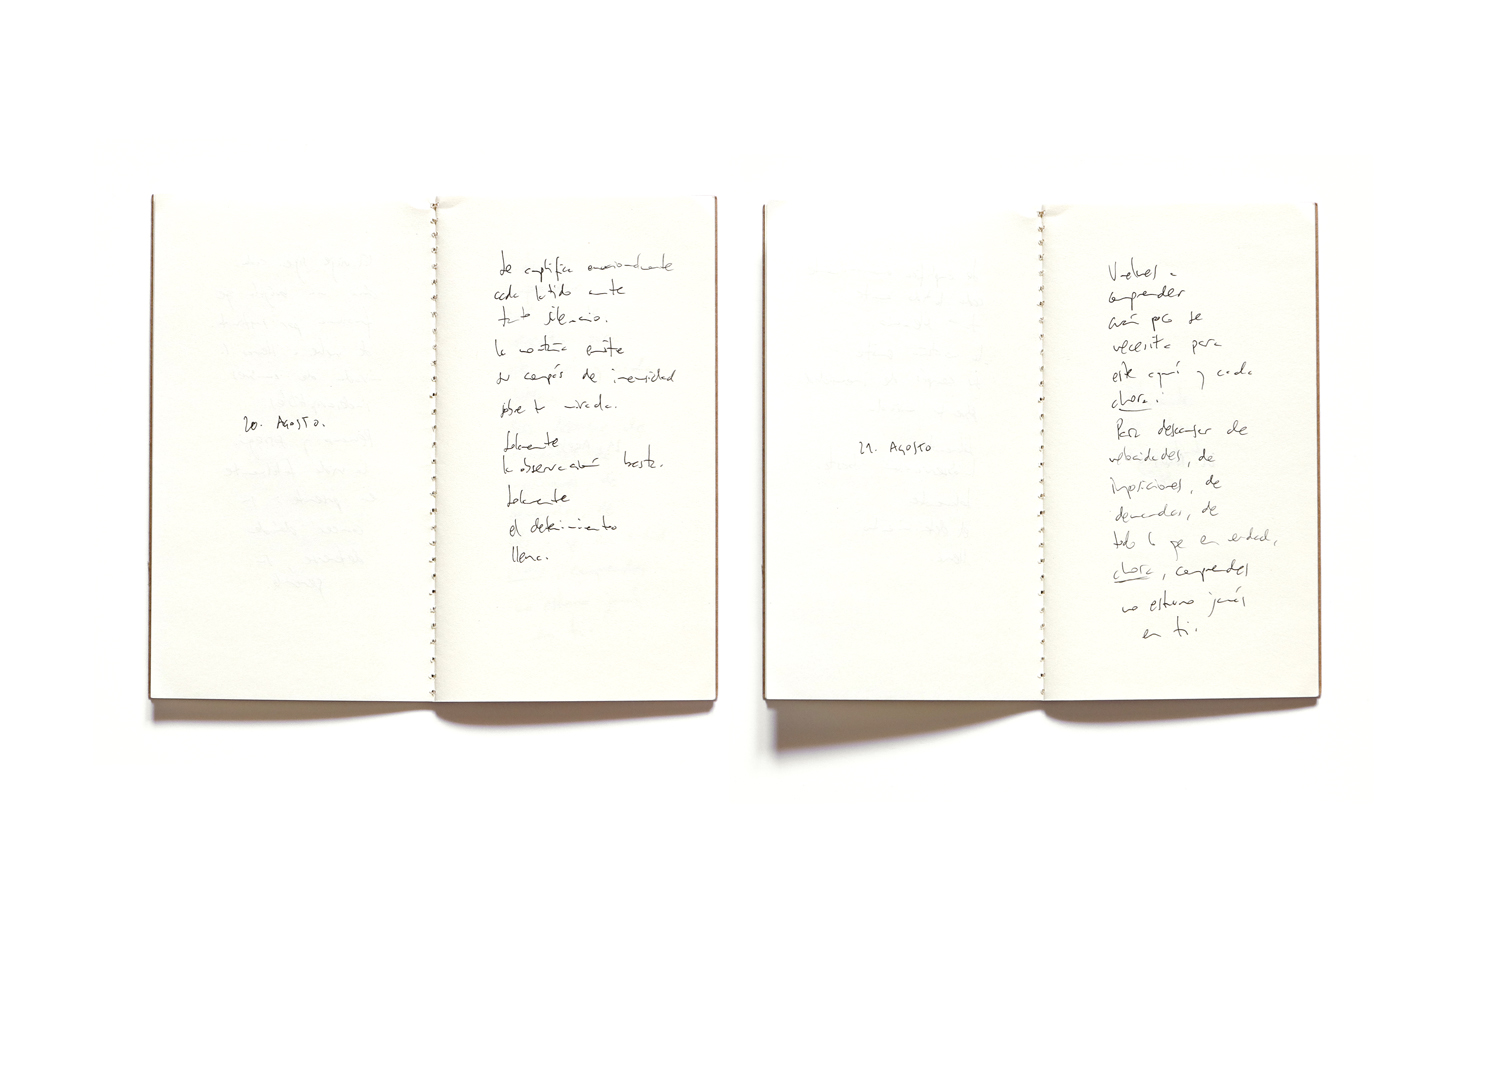 20. AGOSTO.
Se amplifica emocionalmente
cada latido ante
tanto silencio.
la montaña emite
su compás de inmensidad
sobre tu mirada.
Solamente
la observación basta.
Solamente
el detenimiento
llena.
21. AGOSTO
Vuelves a
comprender
cuán poco se
necesita para
este aquí y cada
ahora.
Para descansar de
velocidades, de
imposiciones, de
demandas, de
todo lo que en verdad,
ahora, comprendes
no estuvo jamás
en ti.